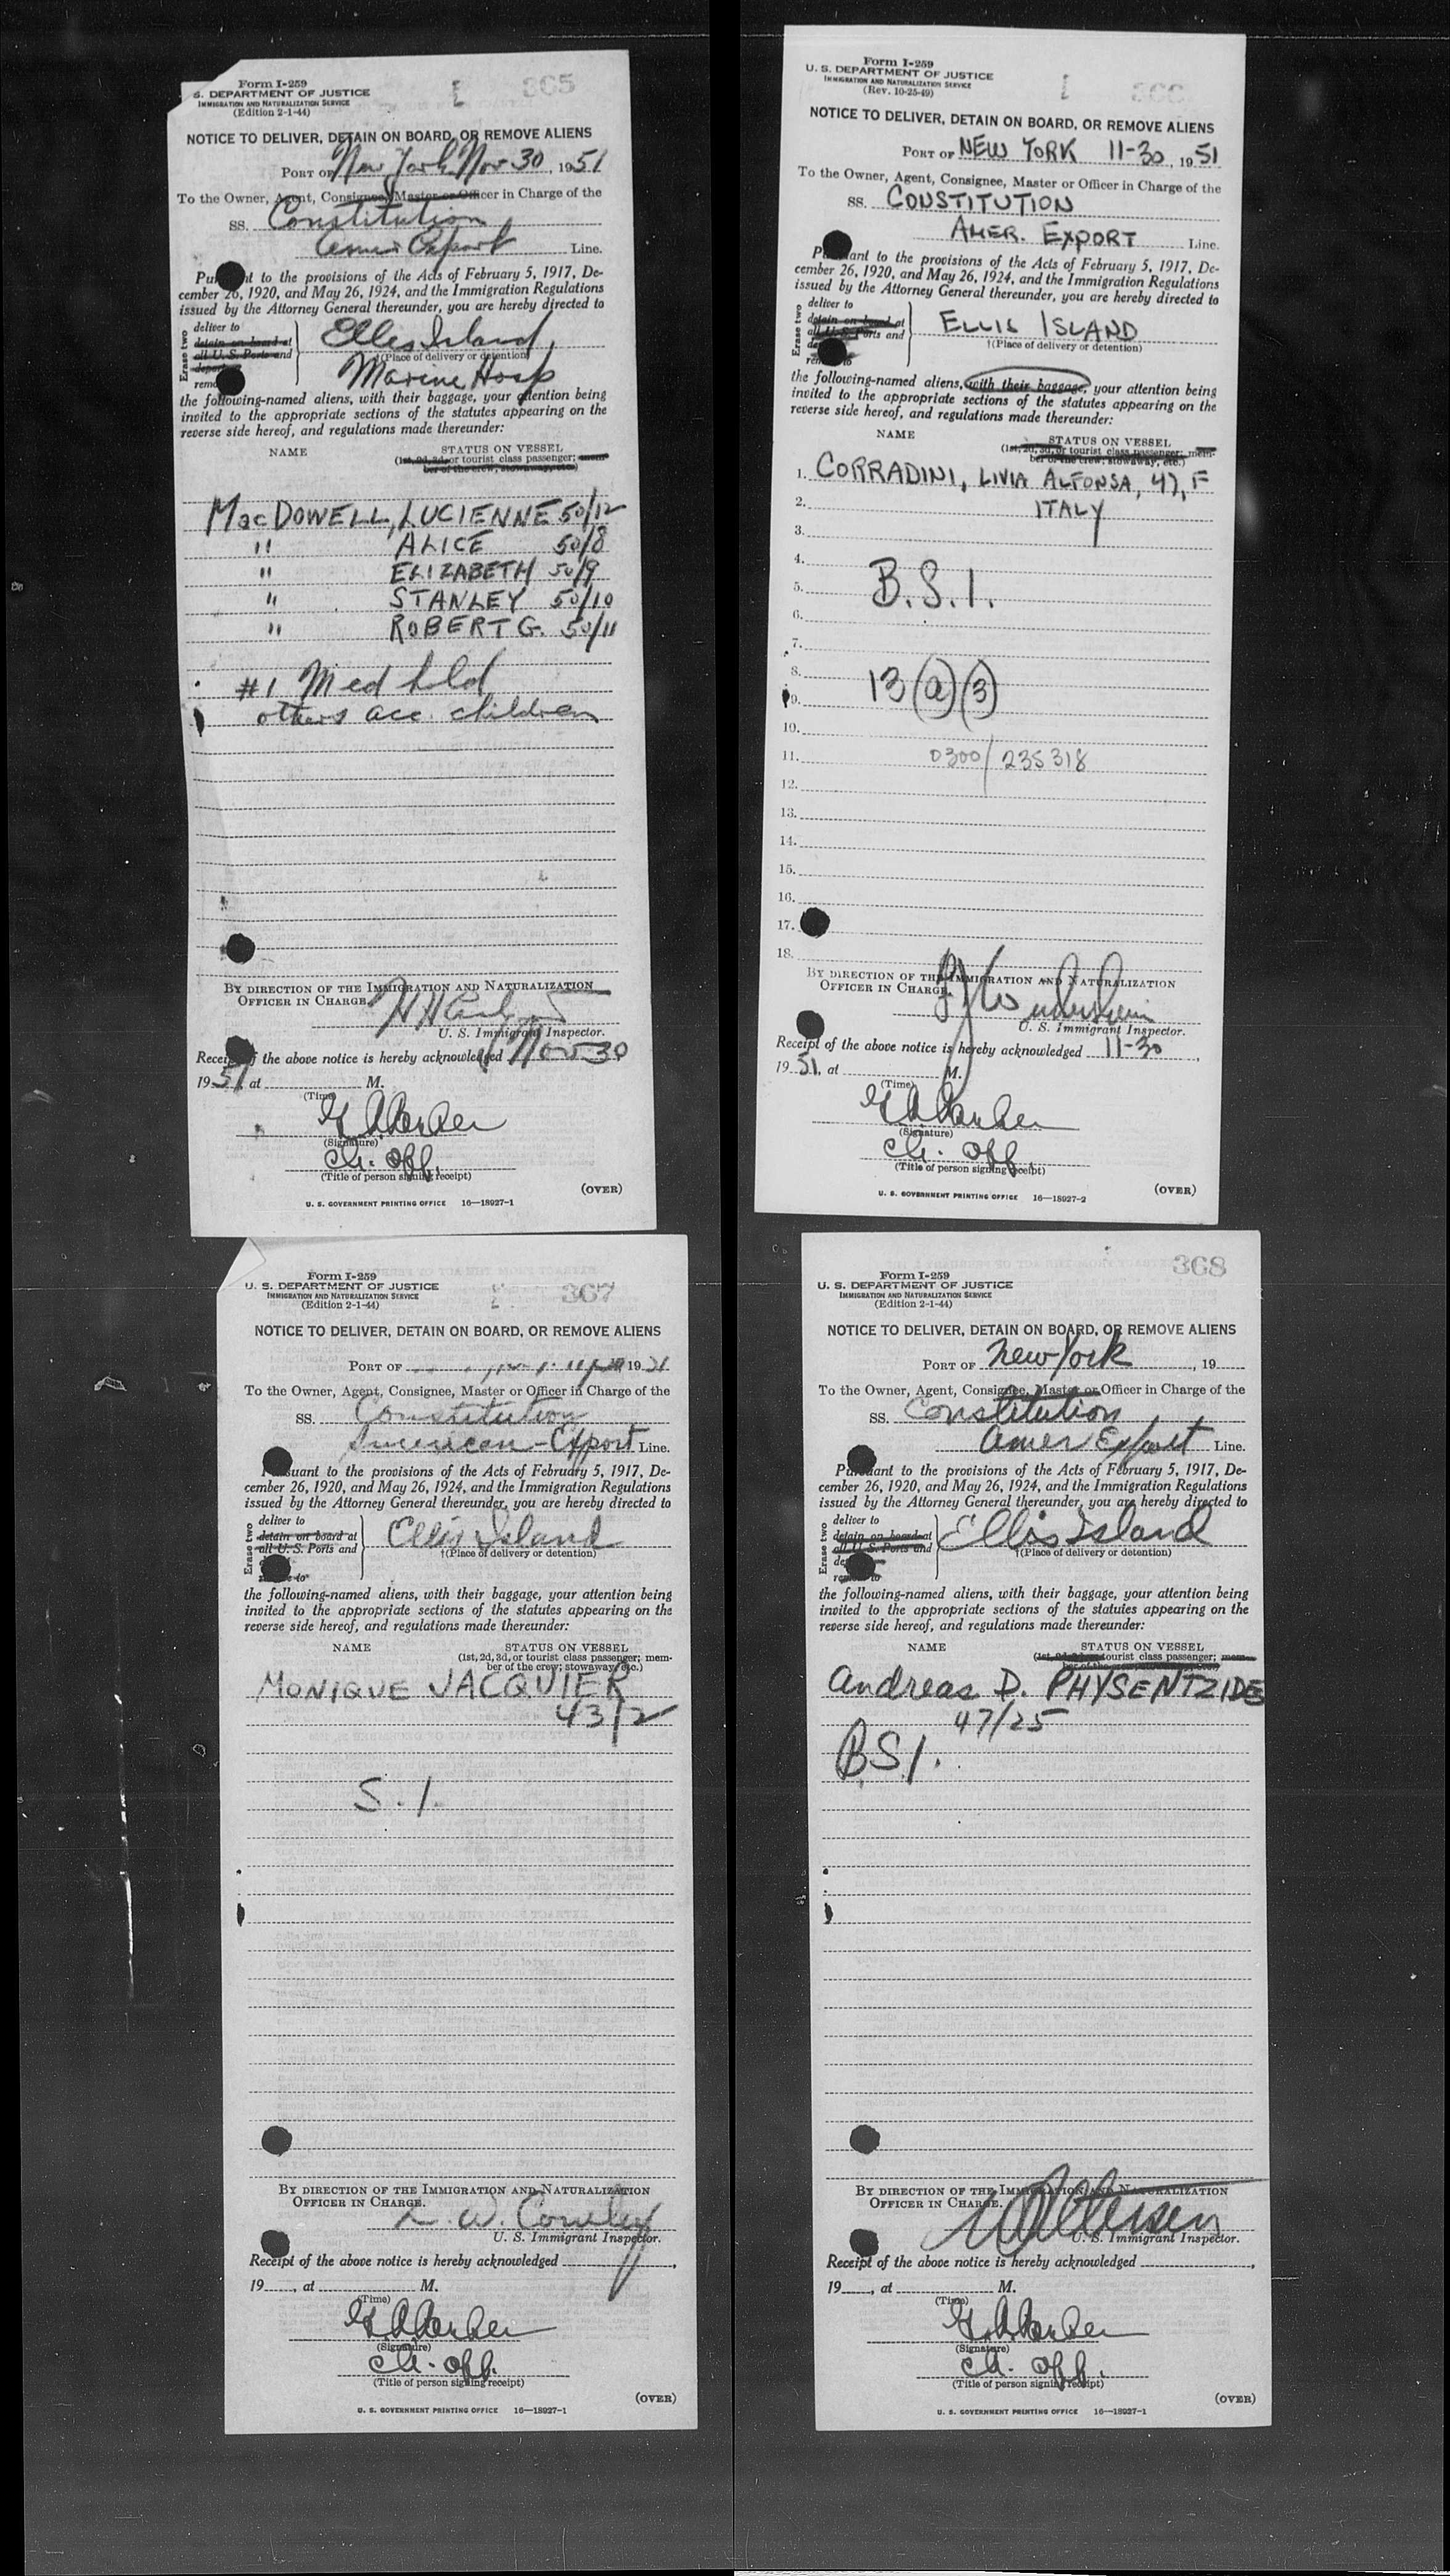 Form I-259
S. DEPARTMENT OF JUSTICE
IMMIGRATION AND NATURALIZATION SERVICE
(Edition 2-1-44)
365
NOTICE TO DELIVER, DETAIN ON BOARD, OR REMOVE ALIENS
PORT OF New York Nov 30, 1951
To the Owner, Agent, Consignee, Master or Officer in Charge of the
SS. Constitution
Amer Export Line.
Pursuant to the provisions of the Acts of February 5, 1917, De-
cember 26, 1920, and May 26, 1924, and the Immigration Regulations
issued by the Attorney General thereunder, you are hereby directed to
Erase two
deliver to
detain on board at
all U. S. Ports and
deport
remo
Ellis Island,
†(Place of delivery or detention)
Marine Hosp
the following-named aliens, with their baggage, your attention being
invited to the appropriate sections of the statutes appearing on the
reverse side hereof, and regulations made thereunder:
NAME STATUS ON VESSEL
(1st, 2d, 3d, or tourist class passenger; mem-
ber of the crew; stowaway, etc.)
MacDOWELL, LUCIENNE 50/12
" ALICE 50/8
" ELIZABETH 50/9
" STANLEY 50/10
" ROBERT G. 50/11
#1 Med held
others acc. children
BY DIRECTION OF THE IMMIGRATION AND NATURALIZATION
OFFICER IN CHARGE.
U. S. Immigrant Inspector.
Receipt of the above notice is hereby acknowledged Nov 30
1951, at M.
(Time)
(Signature)
Ch. Off.
(Title of person signing receipt)
(OVER)
U. S. GOVERNMENT PRINTING OFFICE 16—18927-1
Form I-259
U. S. DEPARTMENT OF JUSTICE
IMMIGRATION AND NATURALIZATION SERVICE
(Rev. 10-25-49)
366
NOTICE TO DELIVER, DETAIN ON BOARD, OR REMOVE ALIENS
PORT OF NEW YORK 11-30, 1951
To the Owner, Agent, Consignee, Master or Officer in Charge of the
SS. CONSTITUTION
AMER. EXPORT Line.
Pursuant to the provisions of the Acts of February 5, 1917, De-
cember 26, 1920, and May 26, 1924, and the Immigration Regulations
issued by the Attorney General thereunder, you are hereby directed to
Erase two
deliver to
detain on board at
all U. S. Ports and
de
remove to
ELLIS ISLAND
†(Place of delivery or detention)
the following-named aliens, with their baggage, your attention being
invited to the appropriate sections of the statutes appearing on the
reverse side hereof, and regulations made thereunder:
NAME STATUS ON VESSEL
(1st, 2d, 3d, or tourist class passenger; mem-
ber of the crew; stowaway, etc.)
1. CORRADINI, LIVIA ALFONSA, 47, F
2. ITALY
3.
4.
5. B.S.I.
6.
7.
8.
9. 13 (a) (3)
10.
11. 0300/235318
12.
13.
14.
15.
16.
17.
18.
BY DIRECTION OF THE IMMIGRATION AND NATURALIZATION
OFFICER IN CHARGE.
U. S. Immigrant Inspector.
Receipt of the above notice is hereby acknowledged 11-30,
1951, at M.
(Time)
(Signature)
Ch. Off.
(Title of person signing receipt)
(OVER)
U. S. GOVERNMENT PRINTING OFFICE 16—18927-2
Form I-259
U. S. DEPARTMENT OF JUSTICE
IMMIGRATION AND NATURALIZATION SERVICE
(Edition 2-1-44)
367
NOTICE TO DELIVER, DETAIN ON BOARD, OR REMOVE ALIENS
PORT OF 19
To the Owner, Agent, Consignee, Master or Officer in Charge of the
SS. Constitution
American-Export Line.
Pursuant to the provisions of the Acts of February 5, 1917, De-
cember 26, 1920, and May 26, 1924, and the Immigration Regulations
issued by the Attorney General thereunder, you are hereby directed to
Erase two
deliver to
detain on board at
all U. S. Ports and
remove to
Ellis Island
†(Place of delivery or detention)
the following-named aliens, with their baggage, your attention being
invited to the appropriate sections of the statutes appearing on the
reverse side hereof, and regulations made thereunder:
NAME STATUS ON VESSEL
(1st, 2d, 3d, or tourist class passenger; mem-
ber of the crew; stowaway, etc.)
MONIQUE JACQUIER
43/2
S.I.
BY DIRECTION OF THE IMMIGRATION AND NATURALIZATION
OFFICER IN CHARGE.
U. S. Immigrant Inspector.
Receipt of the above notice is hereby acknowledged ,
19 , at M.
(Time)
(Signature)
Ch. Off.
(Title of person signing receipt)
(OVER)
U. S. GOVERNMENT PRINTING OFFICE 16—18927-1
Form I-259
U. S. DEPARTMENT OF JUSTICE
IMMIGRATION AND NATURALIZATION SERVICE
(Edition 2-1-44)
368
NOTICE TO DELIVER, DETAIN ON BOARD, OR REMOVE ALIENS
PORT OF New York , 19
To the Owner, Agent, Consignee, Master or Officer in Charge of the
SS. Constitution
Amer Export Line.
Pursuant to the provisions of the Acts of February 5, 1917, De-
cember 26, 1920, and May 26, 1924, and the Immigration Regulations
issued by the Attorney General thereunder, you are hereby directed to
Erase two
deliver to
detain on board at
all U. S. Ports and
de
remove to
Ellis Island
†(Place of delivery or detention)
the following-named aliens, with their baggage, your attention being
invited to the appropriate sections of the statutes appearing on the
reverse side hereof, and regulations made thereunder:
NAME STATUS ON VESSEL
(1st, 2d, 3d, or tourist class passenger; mem-
ber of the crew; stowaway, etc.)
Andreas D. PHYSENTZIDES
47/25
B.S.I.
BY DIRECTION OF THE IMMIGRATION AND NATURALIZATION
OFFICER IN CHARGE.
U. S. Immigrant Inspector.
Receipt of the above notice is hereby acknowledged ,
19 , at M.
(Time)
(Signature)
Ch. Off.
(Title of person signing receipt)
(OVER)
U. S. GOVERNMENT PRINTING OFFICE 16—18927-1